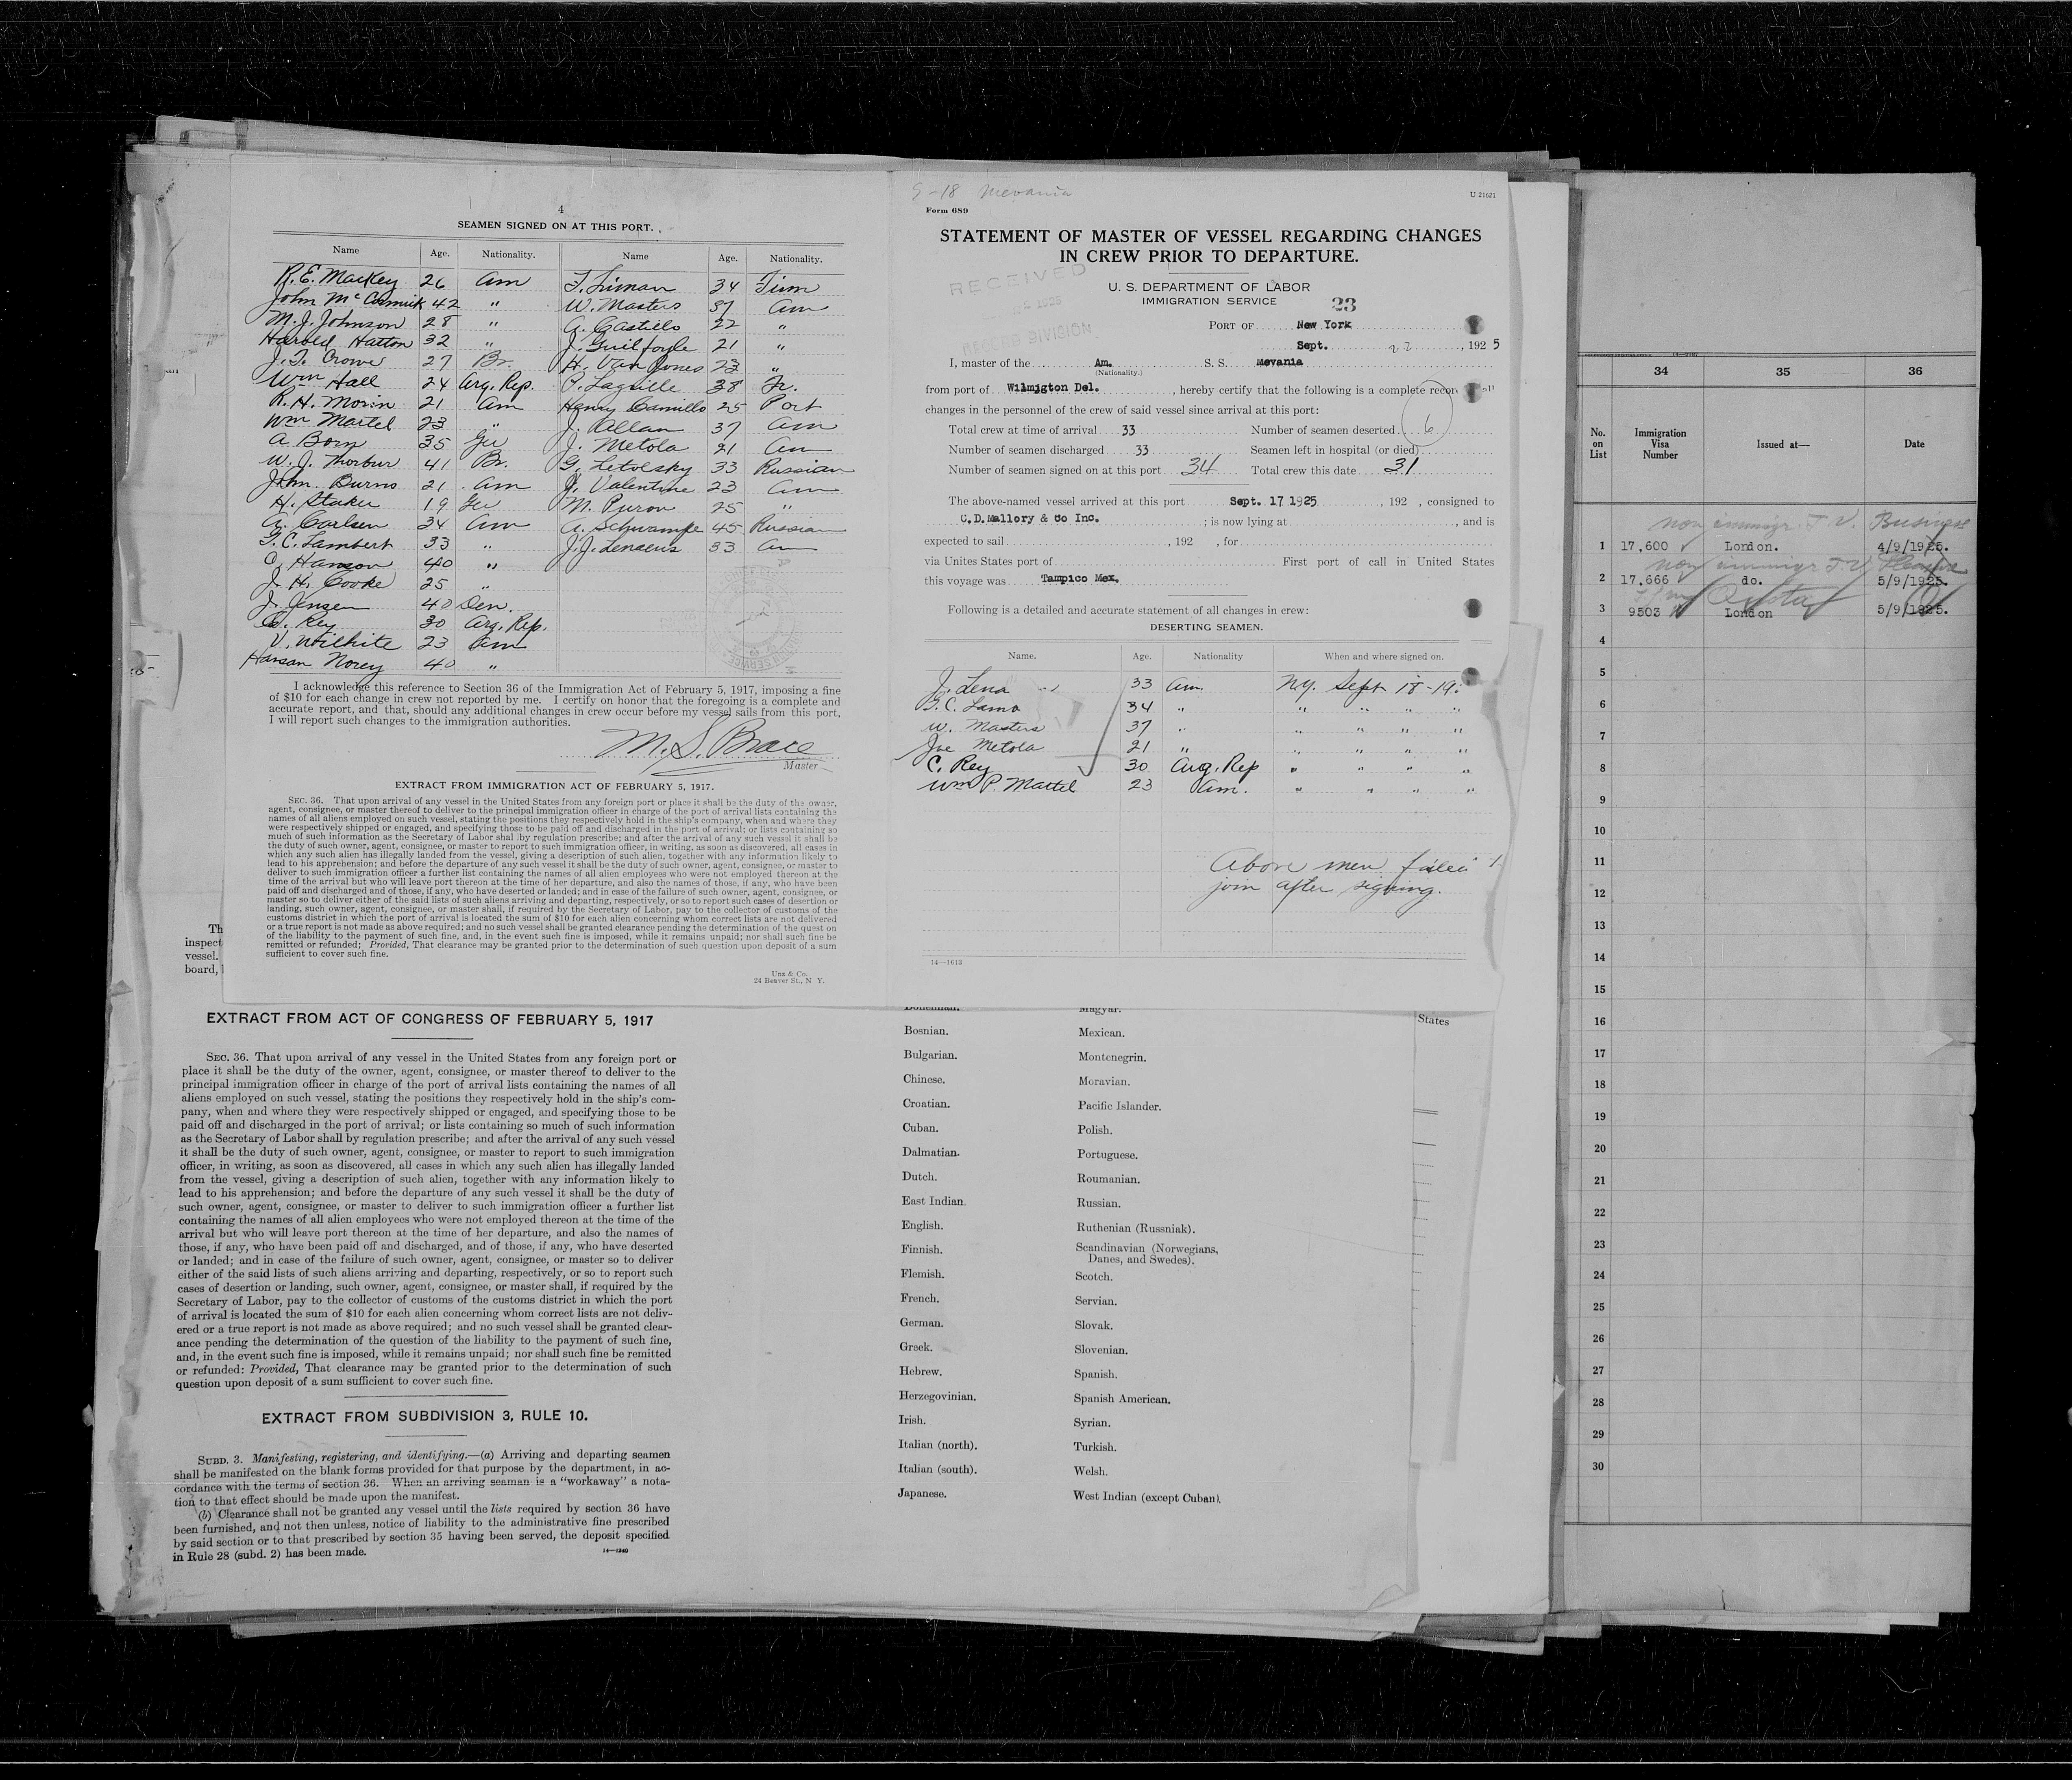 4
SEAMEN SIGNED ON AT THIS PORT.
Name Age. Nationality. Name Age. Nationality.
R. E. Mackey 26 Am
John McCormick 42 "
M. J. Johnson 28 "
Harold Hatton 32 "
J. T. Crowe 27 Br.
Wm Hall 24 Arg. Rep.
R. H. Morin 21 Am
Wm Martel 23 "
A. Born 35 Ger
W. J. 41 Br.
John Burns 21 Am
H. Staker 19 Ger
A. Carlsen 34 Am
G. C. Lambert 33 "
Hanson 40 "
J. H. Cooke 25 "
J. Jensen 40 Den.
C. Rey 30 Arg. Rep.
V. Wilhite 23 Am
Norey 40 "
34
W. Masters 37 Am
A. Castillo 22 "
J. Guilfoyle 21 "
H. Van Jones 23 "
38 Fr.
Henry Camillo 25 Port
J. Allan 37 Am
J. Metola 21 Am
G. Letolsky 33 Russian
Valentine 23 Am
M. Puron 25 "
A. 45 Russian
J. J. Lenaeus 33 Am
I acknowledge this reference to Section 36 of the Immigration Act of February 5, 1917, imposing a fine
of $10 for each change in crew not reported by me. I certify on honor that the foregoing is a complete and
accurate report, and that, should any additional changes in crew occur before my vessel sails from this port,
I will report such changes to the immigration authorities.
M. S. Brace
Master
EXTRACT FROM IMMIGRATION ACT OF FEBRUARY 5, 1917.
SEC. 36. That upon arrival of any vessel in the United States from any foreign port or place it shall be the duty of the owner,
agent, consignee, or master thereof to deliver to the principal immigration officer in charge of the port of arrival lists containing the
names of all aliens employed on such vessel, stating the positions they respectively hold in the ship's company, when and where they
were respectively shipped or engaged, and specifying those to be paid off and discharged in the port of arrival; or lists containing so
much of such information as the Secretary of Labor shal lby regulation prescribe; and after the arrival of any such vessel it shall be
the duty of such owner, agent, consignee, or master to report to such immigration officer, in writing, as soon as discovered, all cases in
which any such alien has illegally landed from the vessel, giving a description of such alien, together with any information likely to
lead to his apprehension; and before the departure of any such vessel it shall be the duty of such owner, agent, consignee, or master to
deliver to such immigration officer a further list containing the names of all alien employees who were not employed thereon at the
time of the arrival but who will leave port thereon at the time of her departure, and also the names of those, if any, who have been
paid off and discharged and of those, if any, who have deserted or landed; and in case of the failure of such owner, agent, consignee, or
master so to deliver either of the said lists of such aliens arriving and departing, respectively, or so to report such cases of desertion or
landing, such owner, agent, consignee, or master shall, if required by the Secretary of Labor, pay to the collector of customs of the
customs district in which the port of arrival is located the sum of $10 for each alien concerning whom correct lists are not delivered
or a true report is not made as above required; and no such vessel shall be granted clearance pending the determination of the quest on
of the liability to the payment of such fine, and, in the event such fine is imposed, while it remains unpaid; nor shall such fine be
remitted or refunded; Provided, That clearance may be granted prior to the determination of such question upon deposit of a sum
sufficient to cover such fine.
Unz & Co.
24 Beaver St., N Y.
9-18 Mevania
U 21621
Form 689
STATEMENT OF MASTER OF VESSEL REGARDING CHANGES
IN CREW PRIOR TO DEPARTURE.
RECEIVED
1925
RECORD DIVISION
U. S. DEPARTMENT OF LABOR
IMMIGRATION SERVICE
23
PORT OF New York
Sept. 22, 1925
I, master of the Am. S. S. Mevania
(Nationality.)
from port of Wilmigton Del., hereby certify that the following is a complete recor
changes in the personnel of the crew of said vessel since arrival at this port:
Total crew at time of arrival 33 Number of seamen deserted 6
Number of seamen discharged 33 Seamen left in hospital (or died)
Number of seamen signed on at this port 34 Total crew this date 31
The above-named vessel arrived at this port Sept. 17 1925, 192 , consigned to
C.D.Mallory & Co Inc. ; is now lying at , and is
expected to sail , 192 , for
via Unites States port of First port of call in United States
this voyage was Tampico Mex.
Following is a detailed and accurate statement of all changes in crew:
DESERTING SEAMEN.
Name. Age. Nationality When and where signed on.
J. Lena 33 Am. N.Y. Sept 18-19
G. C. Lamb 34 " " " " "
W. Masters 37 " " " " "
Joe Metola 21 " " " " "
C. Rey 30 Arg. Rep " " " "
Wm P. Martel 23 Am. " " " "
Above men failed
join after signing.
14—1613
Th
inspect
vessel.
board,
EXTRACT FROM ACT OF CONGRESS OF FEBRUARY 5, 1917
SEC. 36. That upon arrival of any vessel in the United States from any foreign port or
place it shall be the duty of the owner, agent, consignee, or master thereof to deliver to the
principal immigration officer in charge of the port of arrival lists containing the names of all
aliens employed on such vessel, stating the positions they respectively hold in the ship's com-
pany, when and where they were respectively shipped or engaged, and specifying those to be
paid off and discharged in the port of arrival; or lists containing so much of such information
as the Secretary of Labor shall by regulation prescribe; and after the arrival of any such vessel
it shall be the duty of such owner, agent, consignee, or master to report to such immigration
officer, in writing, as soon as discovered, all cases in which any such alien has illegally landed
from the vessel, giving a description of such alien, together with any information likely to
lead to his apprehension; and before the departure of any such vessel it shall be the duty of
such owner, agent, consignee, or master to deliver to such immigration officer a further list
containing the names of all alien employees who were not employed thereon at the time of the
arrival but who will leave port thereon at the time of her departure, and also the names of
those, if any, who have been paid off and discharged, and of those, if any, who have deserted
or landed; and in case of the failure of such owner, agent, consignee, or master so to deliver
either of the said lists of such aliens arriving and departing, respectively, or so to report such
cases of desertion or landing, such owner, agent, consignee, or master shall, if required by the
Secretary of Labor, pay to the collector of customs of the customs district in which the port
of arrival is located the sum of $10 for each alien concerning whom correct lists are not deliv-
ered or a true report is not made as above required; and no such vessel shall be granted clear-
ance pending the determination of the question of the liability to the payment of such fine,
and, in the event such fine is imposed, while it remains unpaid; nor shall such fine be remitted
or refunded: Provided, That clearance may be granted prior to the determination of such
question upon deposit of a sum sufficient to cover such fine.
EXTRACT FROM SUBDIVISION 3, RULE 10.
SUBD. 3. Manifesting, registering, and identifying.—(a) Arriving and departing seamen
shall be manifested on the blank forms provided for that purpose by the department, in ac-
cordance with the terms of section 36. When an arriving seaman is a "workaway" a nota-
tion to that effect should be made upon the manifest.
(b) Clearance shall not be granted any vessel until the lists required by section 36 have
been furnished, and not then unless, notice of liability to the administrative fine prescribed
by said section or to that prescribed by section 35 having been served, the deposit specified
in Rule 28 (subd. 2) has been made.
14—1240
Bohemian. Magyar.
Bosnian. Mexican.
Bulgarian. Montenegrin.
Chinese. Moravian.
Croatian. Pacific Islander.
Cuban. Polish.
Dalmatian. Portuguese.
Dutch. Roumanian.
East Indian. Russian.
English. Ruthenian (Russniak).
Finnish. Scandinavian (Norwegians,
Danes, and Swedes).
Flemish. Scotch.
French. Servian.
German. Slovak.
Greek. Slovenian.
Hebrew. Spanish.
Herzegovinian. Spanish American.
Irish. Syrian.
Italian (north). Turkish.
Italian (south). Welsh.
Japanese. West Indian (except Cuban).
States
34 35 36
No. on List Immigration Visa Number Issued at— Date
non immigr. T.V. Business
1 17,600 London. 4/9/1925.
non immigr T.V. Pleasure
2 17,666 do. 5/9/1925.
Quota
3 9503 London 5/9/1925.
4
5
6
7
8
9
10
11
12
13
14
15
16
17
18
19
20
21
22
23
24
25
26
27
28
29
30